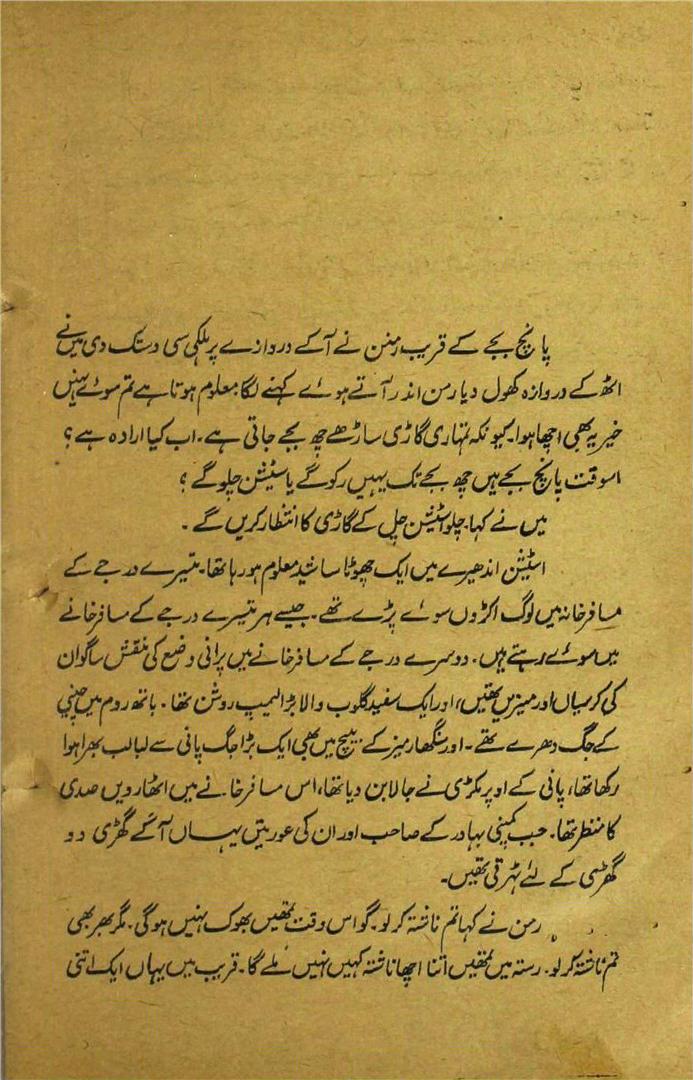 پانچ بجے کے قریب رمنن نے آکے دروازے پر ہلکی سی دستک دی میں نے
اٹھ کے دروازہ کھول دیا رمن اندر آتے ہوئے کہنے لگا معلوم ہوتا ہے تم سوئے نہیں
خیر یہ بھی اچھا ہوا۔ کیونکہ تمہاری گاڑی ساڑھے چھ بجے جاتی ہے۔ اب کیا ارادہ ہے؟
اسوقت پانچ بجے ہیں چھ بجے تک یہیں رکو گے یا سٹیشن چلو گے؟
میں نے کہا۔ چلو اسٹیشن چل کے گاڑی کا انتظار کریں گے۔
اسٹیشن اندھیرے میں ایک چھوٹا سا شیڈ معلوم ہو رہا تھا۔ تیسرے درجے کے
مسافر خانہ میں لوگ اکڑوں سوئے پڑے تھے۔ جیسے ہر تیسرے درجے کے مسافر خانے
میں سوئے رہتے ہیں۔ دوسرے درجے کے مسافر خانے میں پرانی وضع کی منقش ساگوان
کی کرسیاں اور میزیں تھیں، اور ایک سفید گلوب والا بڑا لیمپ روشن تھا۔ باتھ روم میں چینی
کے جگ دھرے تھے۔ اور سنگھار میز کے بیچ میں بھی ایک بڑا جگ پانی سے لبالب بھرا ہوا
رکھا تھا، پانی کے اوپر مکڑی نے جالا بن دیا تھا، اس مسافر خانے میں اٹھارویں صدی
کا منظر تھا۔ جب کمپنی بہادر کے صاحب اور ان کی عورتیں یہاں آکے گھڑی دو
گھڑی کے لئے ٹہرتی تھیں۔
رمن نے کہا تم ناشتہ کر لو۔ گو اس وقت تمھیں بھوک نہیں ہو گی۔ مگر پھر بھی
تم ناشتہ کر لو۔ رستہ میں تمھیں اتنا اچھا ناشتہ کہیں نہیں ملے گا۔ قریب میں یہاں ایک اتنی